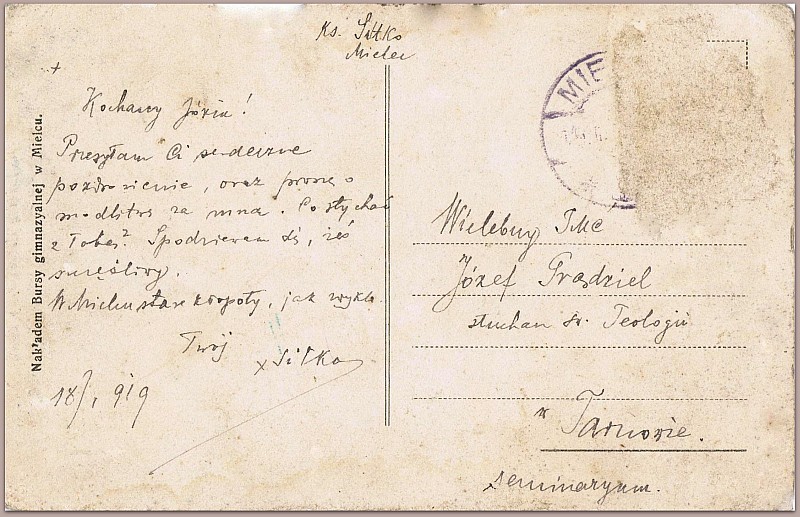 Ks. Sitko
Mielec
Kochany Józiu!
Przesyłam Ci serdeczne
pozdrowienie, oraz proszę o
modlitwę za mną. Co słychać
z Tobą? Spodziewam się, żeś
szczęśliwy.
W Mielcu stare kłopoty, jak zwykle
Twój
x Sitko
18/I 919
Nakładem Bursy gimnazyalnej w Mielcu.
MIE
Wielebny
Józef
słuchacz św. Teologii
w
Tarnowie.
seminaryum.